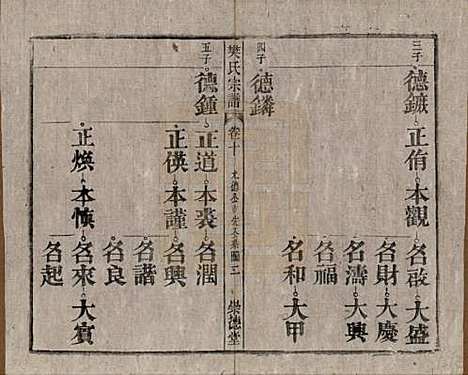 三子 德鏚 正侑 本觀 名啟 大盛
名財 大慶
名濤 大興
名福
名和 大甲
四子 德鏻
樊氏宗譜 卷十 世系圖三 崇德堂
五子 德鍾 正道 本裘 名潤
正偀 本謹 名興
名譜
名良
正煥 本慎 名來 大賓
名起